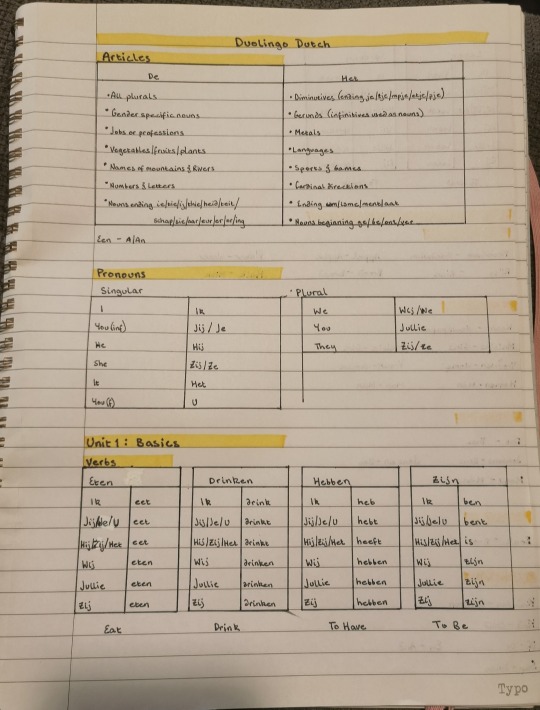 Duolingo Dutch
Articles
De Het
•All plurals •Diminutives (ending je/tje/mpje/etje/pje)
•Gender specific nouns •Gerunds (infinitives used as nouns)
•Jobs or professions •Metals
•Vegetables/fruits/plants •Languages
•Names of mountains & Rivers •Sports & Games
•Numbers & Letters •Cardinal directions
•Nouns ending ie/tie/ij/thie/heid/teit/ •Ending um/isme/ment/aat
schap/sie/aar/eur/er/or/ing •Nouns beginning ge/be/ont/ver
Een - A/An
Pronouns
Singular •Plural
I Ik We Wij/We
You(inf) Jij / Je You Jullie
He Hij They Zij/ze
She Zij/Ze
It Het
You(f) U
Unit 1: Basics
Verbs
Eten Drinken Hebben Zijn
Ik eet Ik drink Ik heb Ik ben
Jij/Je/U eet Jij/Je/U drinkt Jij/Je/U hebt Jij/Je/U bent
Hij/Zij/Het eet Hij/Zij/Het drinkt Hij/Zij/Het heeft Hij/Zij/Het is
Wij eten Wij drinken Wij hebben Wij zijn
Jullie eten Jullie drinken Jullie hebben Jullie zijn
Zij eten Zij drinken Zij hebben Zij zijn
Eat Drink To Have To Be
Typo